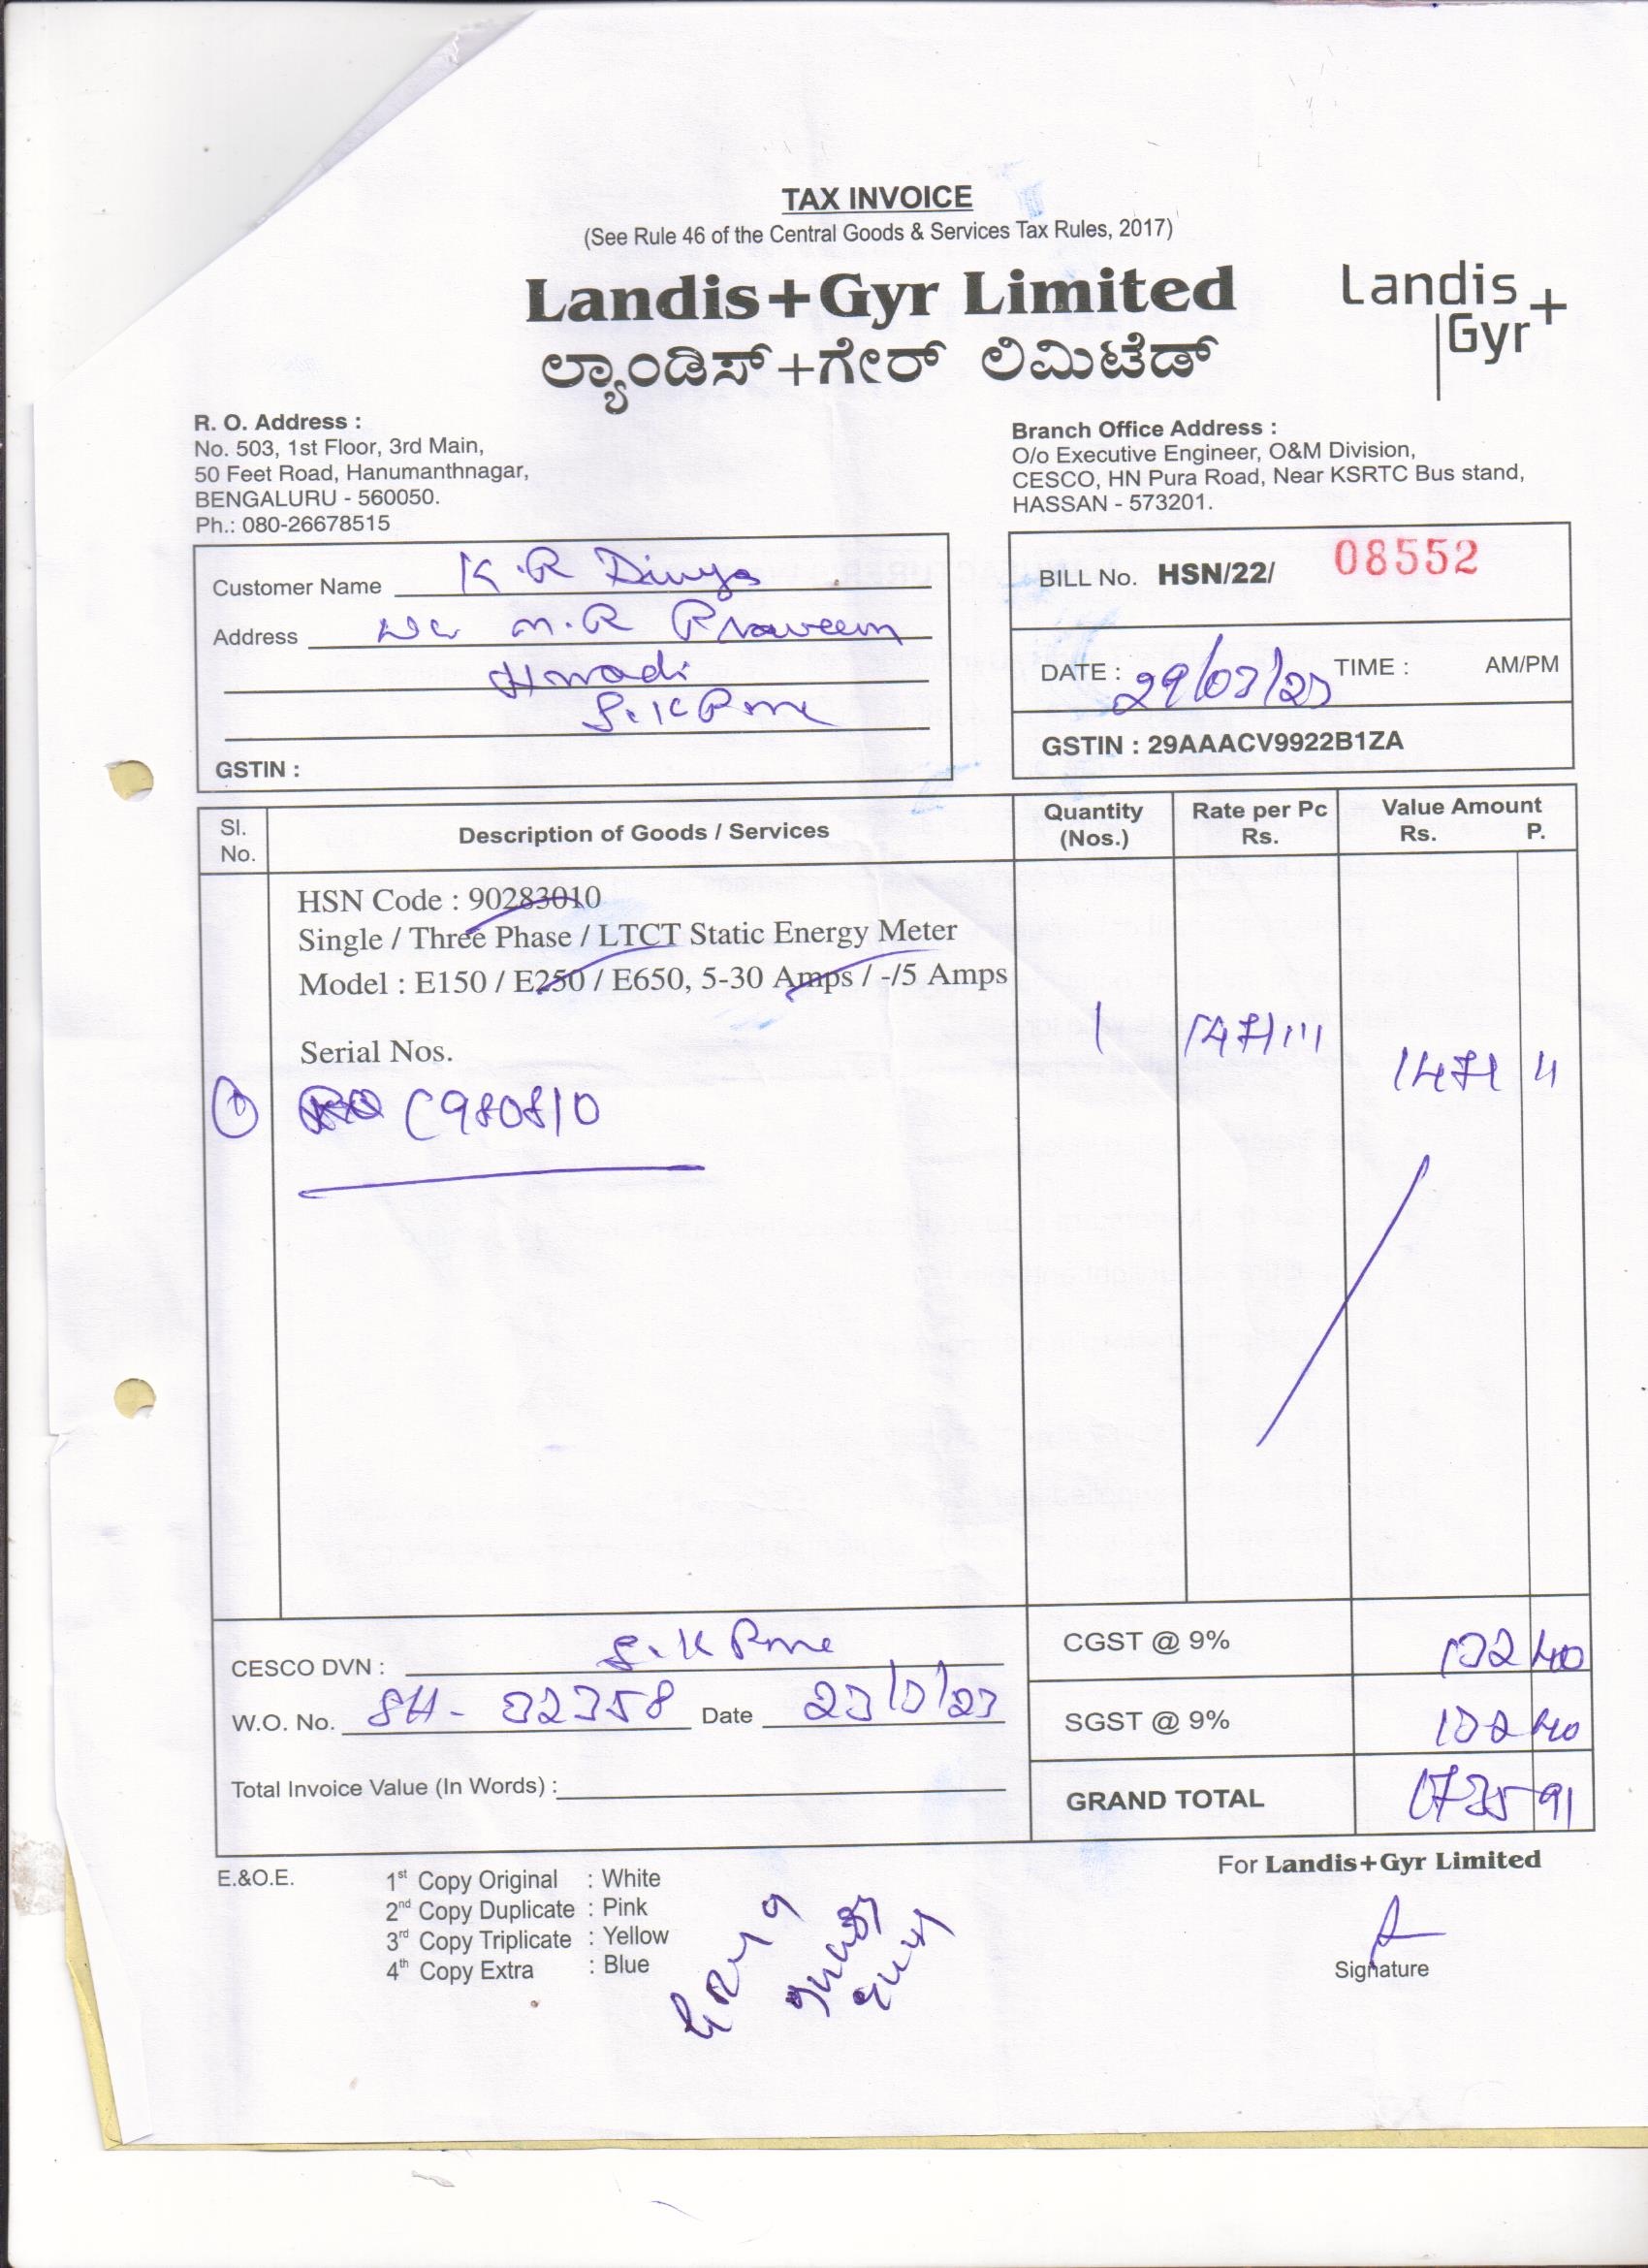 TAX INVOICE
(See Rule 46 of the Central Goods & Services Tax Rules, 2017)
Landis+Gyr Limited
ಲ್ಯಾಂಡಿಸ್+ಗೇರ್ ಲಿಮಿಟೆಡ್
Landis+
Gyr
R. O. Address :
No. 503, 1st Floor, 3rd Main,
50 Feet Road, Hanumanthnagar,
BENGALURU - 560050.
Ph.: 080-26678515
Branch Office Address :
O/o Executive Engineer, O&M Division,
CESCO, HN Pura Road, Near KSRTC Bus stand,
HASSAN - 573201.
Customer Name K.R Divya
Address M.R Praveen
S.K Pura
GSTIN :
BILL No. HSN/22/ 08552
DATE : 29/03/23 TIME : AM/PM
GSTIN : 29AAACV9922B1ZA
Sl. No. Description of Goods / Services Quantity (Nos.) Rate per Pc Rs. Value Amount Rs. P.
HSN Code : 90283010
Single / Three Phase / LTCT Static Energy Meter
Model : E150 / E250 / E650, 5-30 Amps / -/5 Amps
Serial Nos. 1 1471.11 1471 11
1 C980810
CESCO DVN : S.K Pura
W.O. No. SH- 32358 Date 23/3/23
Total Invoice Value (In Words) :
CGST @ 9% 132 40
SGST @ 9% 132 40
GRAND TOTAL 1735 91
E.&O.E.
1st Copy Original : White
2nd Copy Duplicate : Pink
3rd Copy Triplicate : Yellow
4th Copy Extra : Blue
For Landis+Gyr Limited
Signature